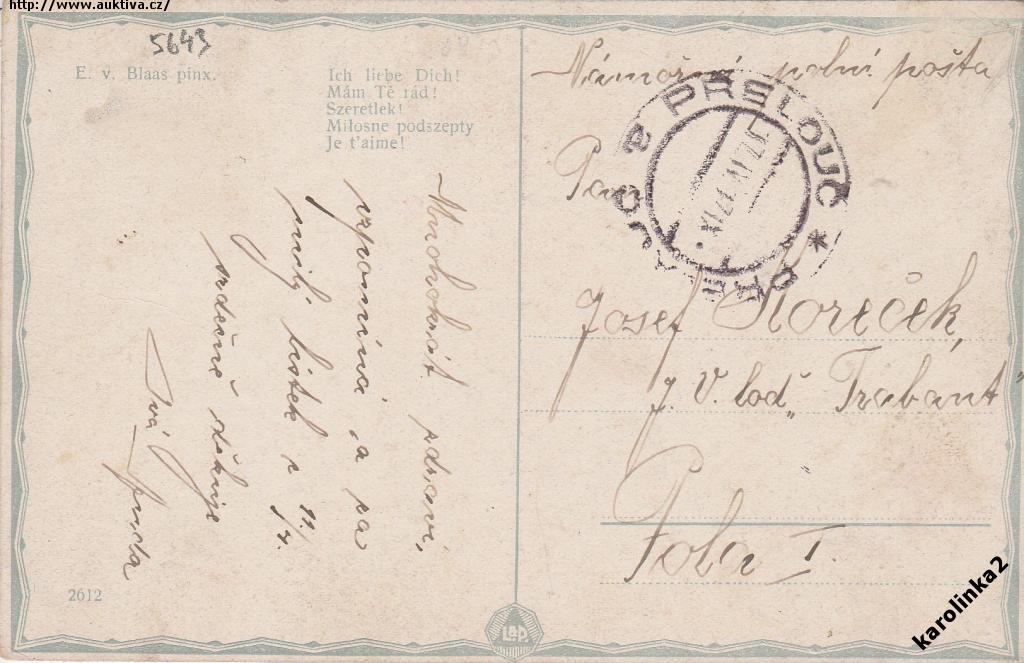 http://www.auktiva.cz/
5643
E. v. Blaas pinx.
Ich liebe Dich!
Mám Tě rád!
Szeretlek!
Miłosne podszepty
Je t'aime!
Mnohokrát zdraví,
vzpomíná a za
milý lístek z 11/4.
srdečně děkuje
Tvá
Námořní polní pošta
PŘELOUČ *
a
Pan
Josef Kореček,
J. V. loď „Trabant"
Pola I.
2612
L&P.
karolinka2